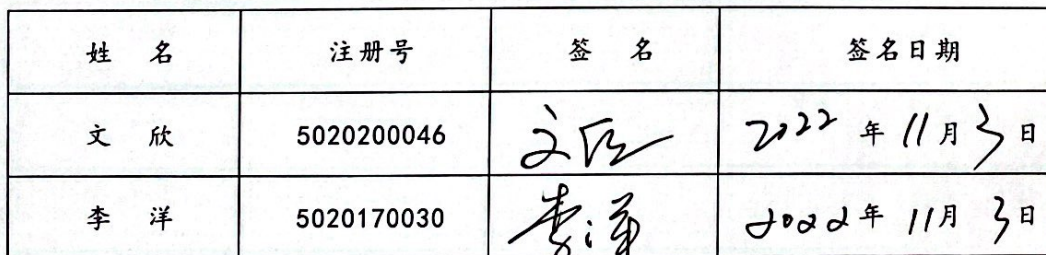 姓 名 注册号 签 名 签名日期
文 欣 5020200046 文欣 2022 年 11 月 3 日
李 洋 5020170030 李洋 2022 年 11 月 3 日